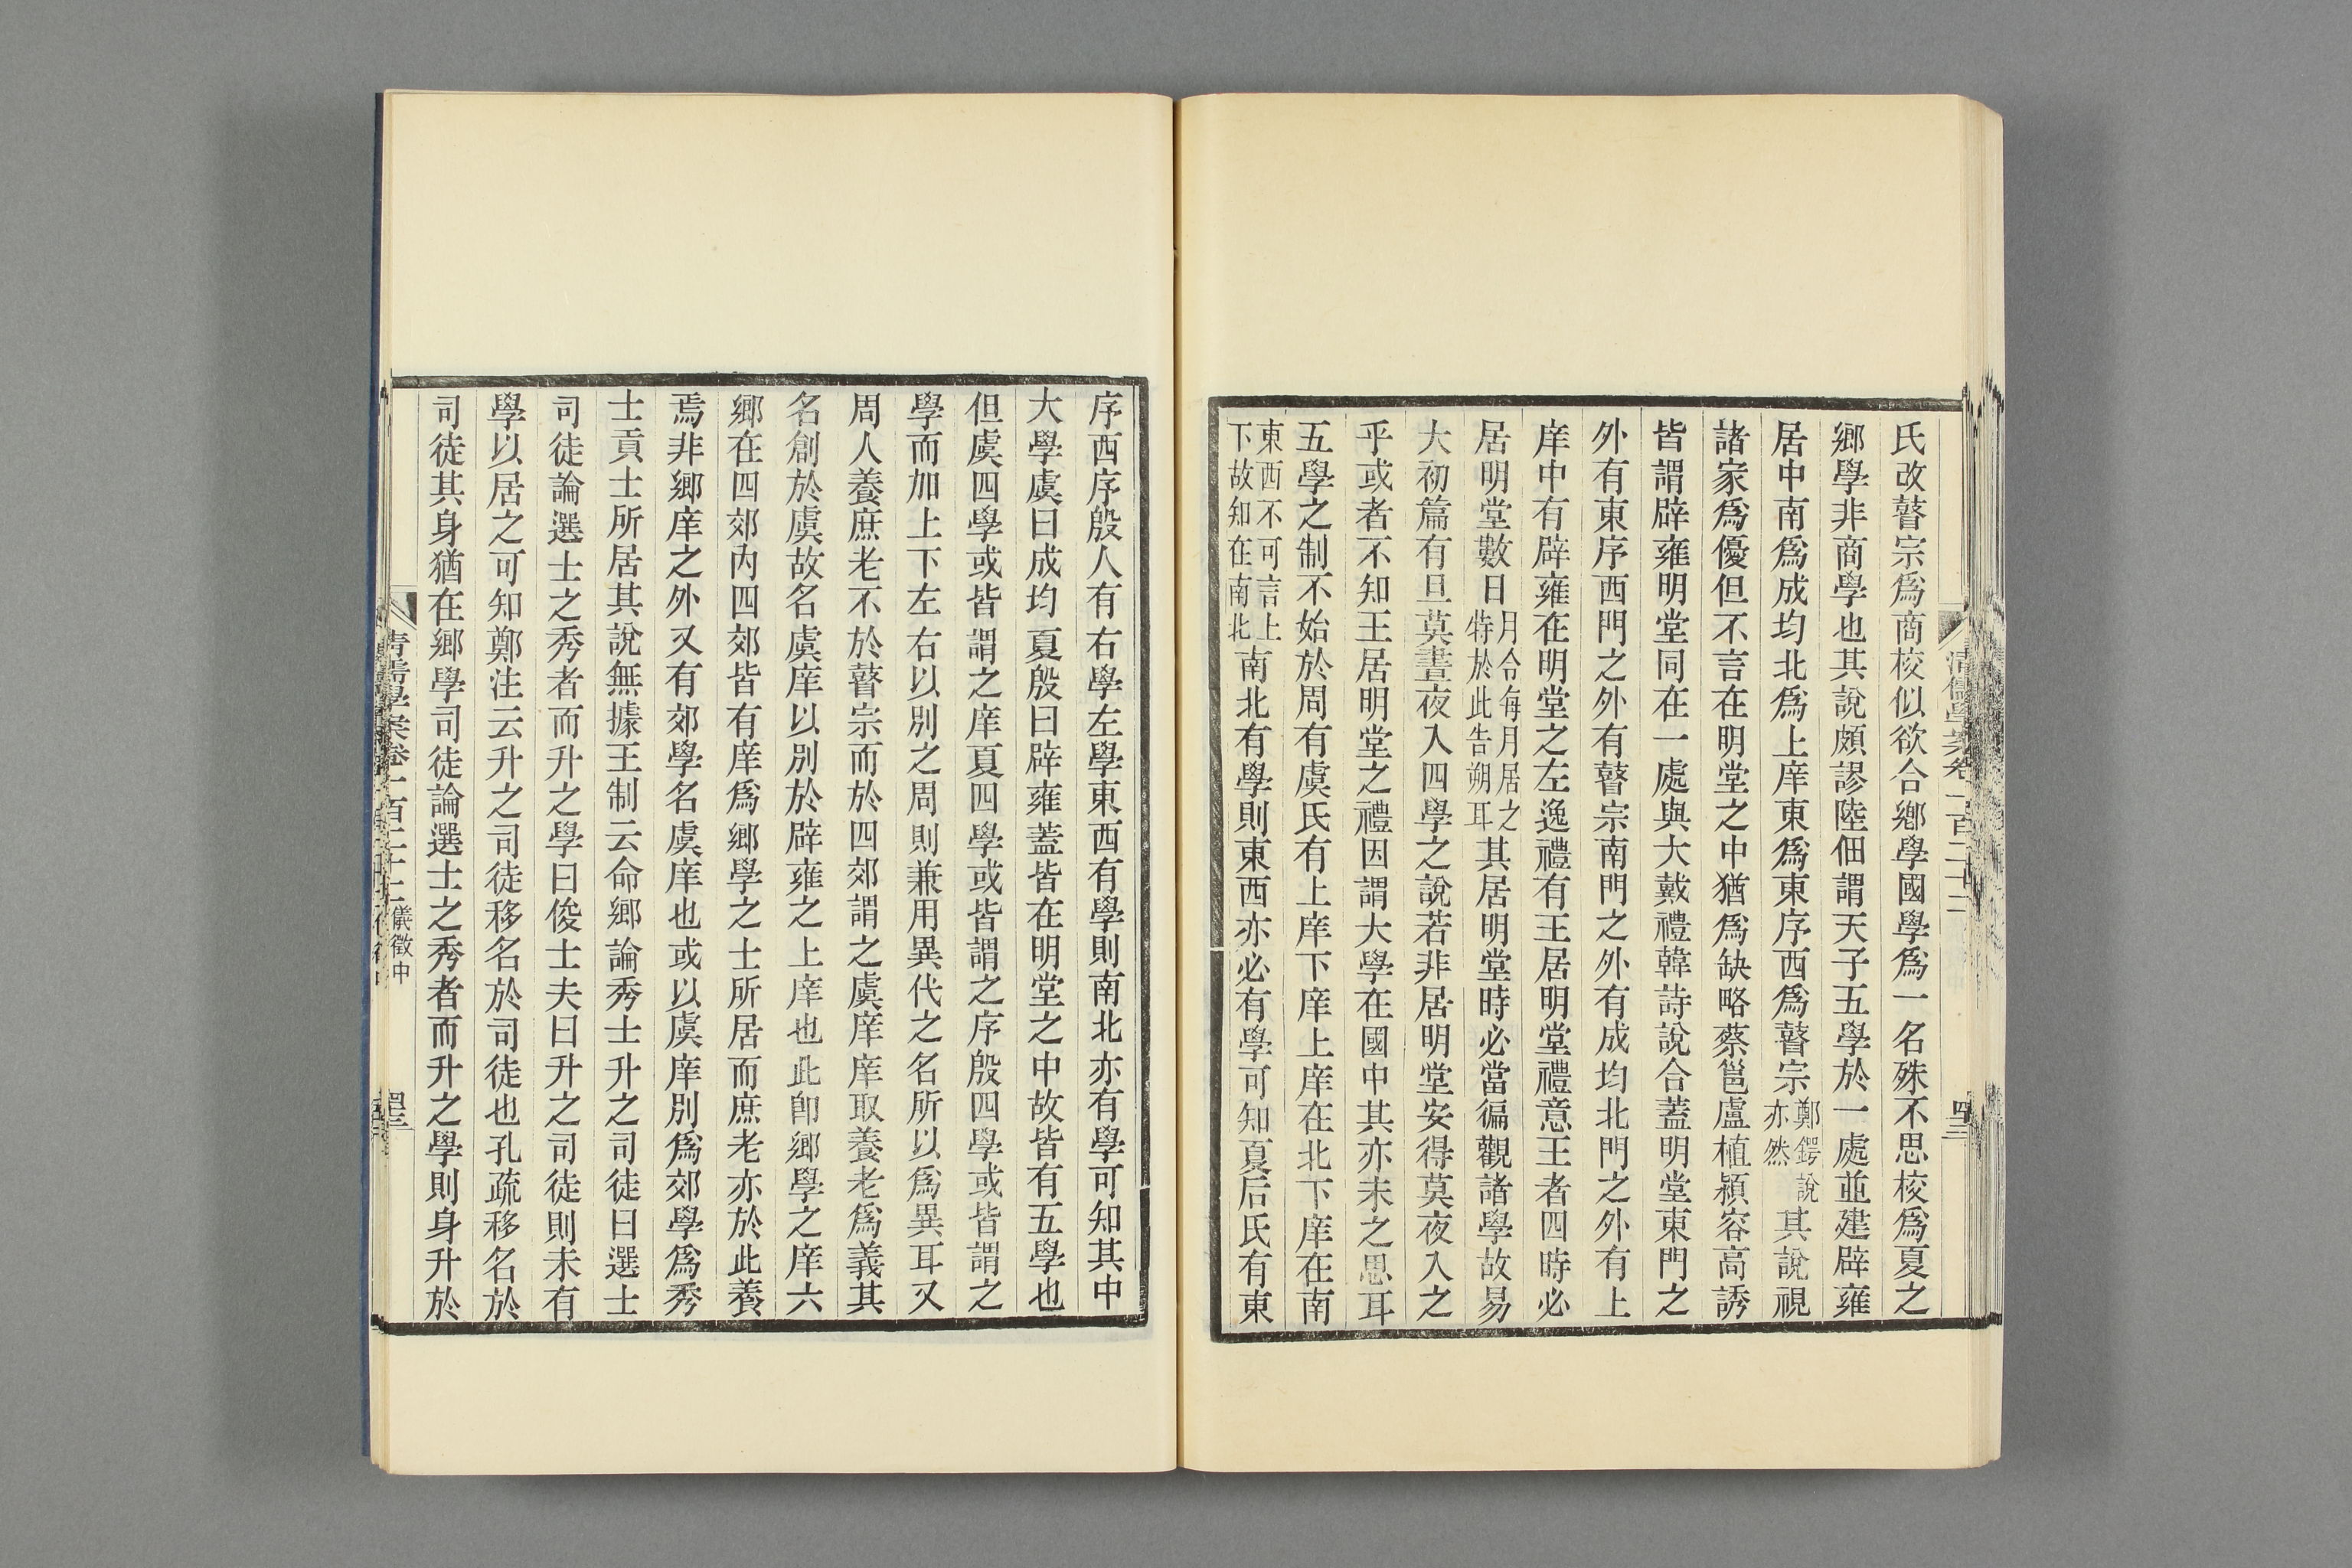 氏改瞽宗爲商校似欲合鄕學國學爲一名殊不思校爲夏之
鄕學非商學也其說頗謬陸佃謂天子五學於一處並建辟雍
居中南爲成均北爲上庠東爲東序西爲瞽宗鄭鍔說亦然其說視
諸家爲優但不言在明堂之中猶爲缺略蔡邕盧植潁容高誘
皆謂辟雍明堂同在一處與大戴禮韓詩說合蓋明堂東門之
外有東序西門之外有瞽宗南門之外有成均北門之外有上
庠中有辟雍在明堂之左逸禮有王居明堂禮意王者四時必
居明堂數日月令每月居之特於此告朔耳其居明堂時必當徧觀諸學故易
大初篇有旦莫晝夜入四學之說若非居明堂安得莫夜入之
乎或者不知王居明堂之禮因謂大學在國中其亦未之思耳
五學之制不始於周有虞氏有上庠下庠上庠在北下庠在南
東西不可言上下故知在南北南北有學則東西亦必有學可知夏后氏有東
序西序殷人有右學左學東西有學則南北亦有學可知其中
大學虞曰成均夏殷曰辟雍蓋皆在明堂之中故皆有五學也
但虞四學或皆謂之庠夏四學或皆謂之序殷四學或皆謂之
學而加上下左右以別之周則兼用異代之名所以爲異耳又
周人養庶老不於瞽宗而於四郊謂之虞庠庠取養老爲義其
名創於虞故名虞庠以別於辟雍之上庠也此卽鄕學之庠六
鄕在四郊內四郊皆有庠爲鄕學之士所居而庶老亦於此養
焉非鄕庠之外又有郊學名虞庠也或以虞庠別爲郊學爲秀
士貢士所居其說無據王制云命鄕論秀士升之司徒曰選士
司徒論選士之秀者而升之學曰俊士夫曰升之司徒則未有
學以居之可知鄭注云升之司徒移名於司徒也孔疏移名於
司徒其身猶在鄕學司徒論選士之秀者而升之學則身升於